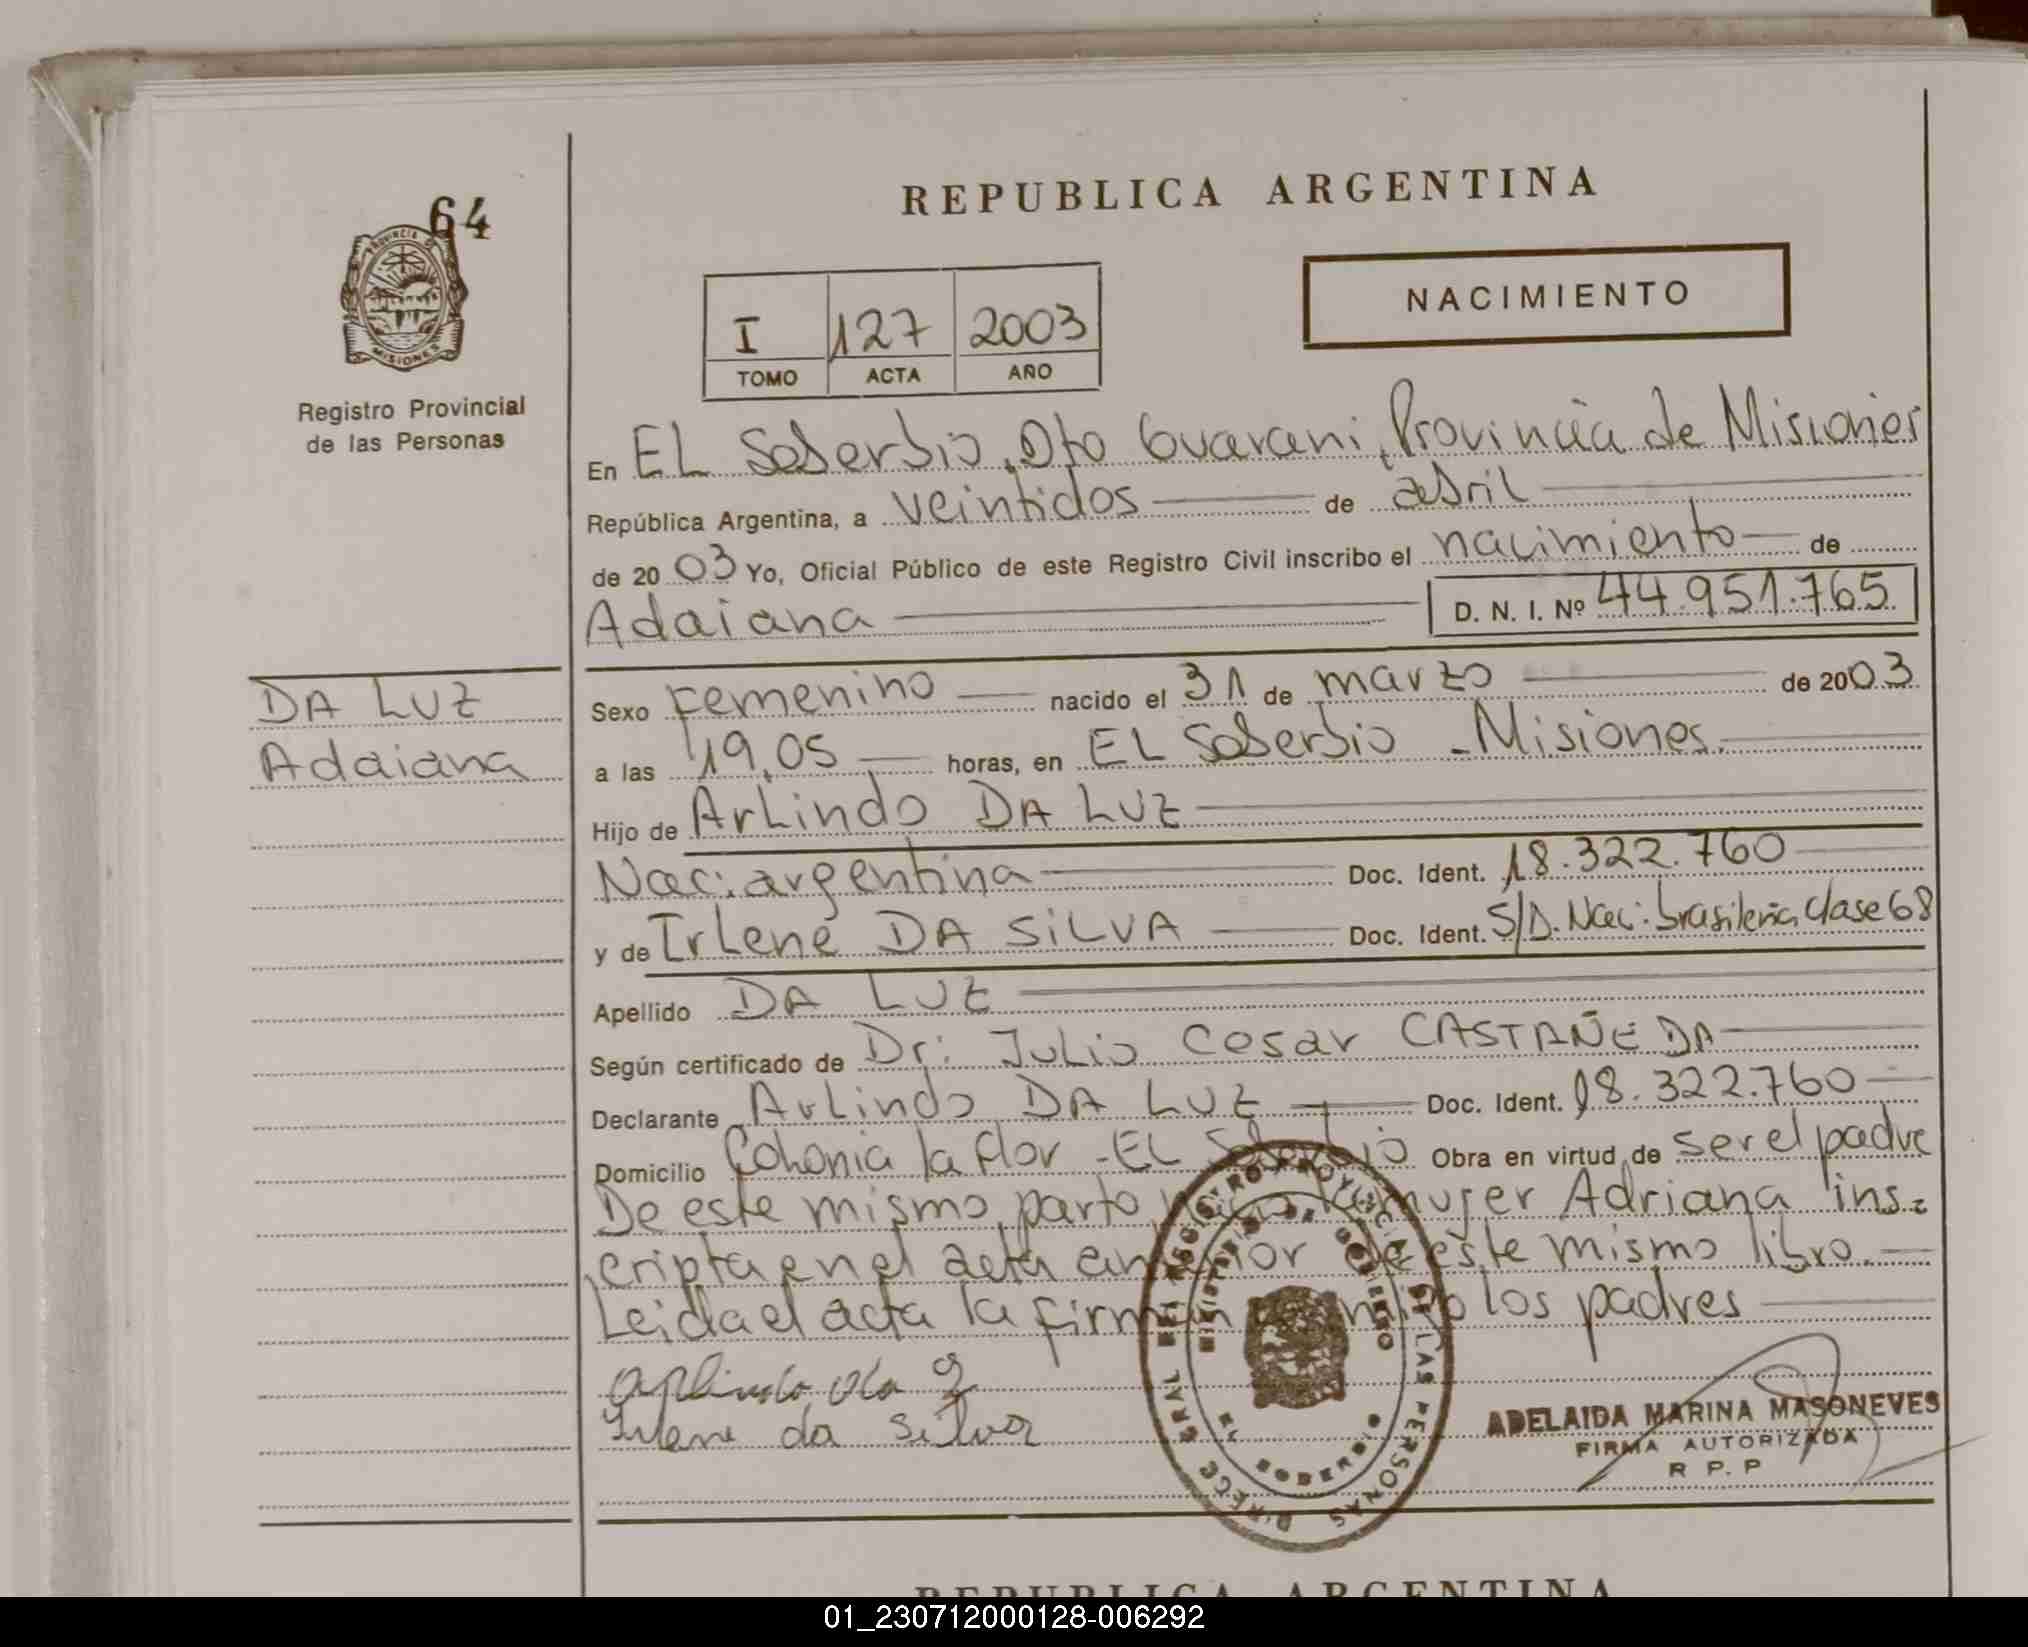 64
PROVINCIA DE
MISIONES
Registro Provincial
de las Personas
REPUBLICA ARGENTINA
NACIMIENTO
I 127 2003
TOMO ACTA AÑO
En EL Soberbio, Dto Guarani, Provincia de Misiones
República Argentina, a veintidos de abril
de 2003 Yo, Oficial Público de este Registro Civil inscribo el nacimiento de
Adaiana D. N. I. Nº 44.951.765
DA LUZ
Adaiana
Sexo Femenino nacido el 31 de marzo de 2003
a las 19,05 horas, en EL Soberbio - Misiones.
Hijo de ArLindo DA LUZ
Nac: argentina Doc. Ident. 18.322.760
y de IrLene DA SiLVA Doc. Ident. S/D. Nac: brasileña clase 68
Apellido DA LUZ
Según certificado de Dr: Julio Cesar CASTAÑEDA
Declarante ArLindo DA LUZ Doc. Ident. 18.322.760
Domicilio Colonia la flor - EL Soberbio Obra en virtud de ser el padre
De este mismo parto, nacio la mujer Adriana ins-
cripta en el acta anterior de este mismo libro.
Leida el acta la firman conmigo los padres
Irlene da Silva
DIRECC GRAL DEL REGISTRO PROVINCIAL DE LAS PERSONAS
MINISTERIO DE GOBIERNO
EL SOBERBIO
ADELAIDA MARINA MASONEVES
FIRMA AUTORIZADA
R P. P
REPUBLICA ARGENTINA
01_230712000128-006292